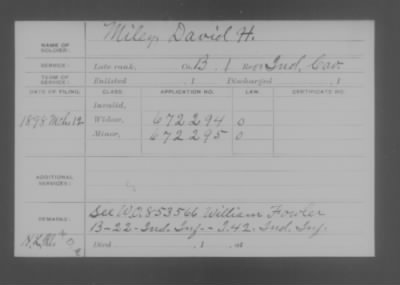 NAME OF SOLDIER: Miley, David H.
SERVICE: Late rank, Co. B, 1 Reg't Ind. Cav.
TERM OF SERVICE: Enlisted , 1 Discharged , 1
DATE OF FILING. CLASS. APPLICATION NO. LAW. CERTIFICATE NO.
Invalid,
1898 Mch. 12 Widow, 672294 0
Minor, 672295 0
ADDITIONAL SERVICES:
REMARKS: See W.O. 853566 William Fowler
B-22-Ind. Inf. - I.42. Ind. Inf.
Died , 1 , at